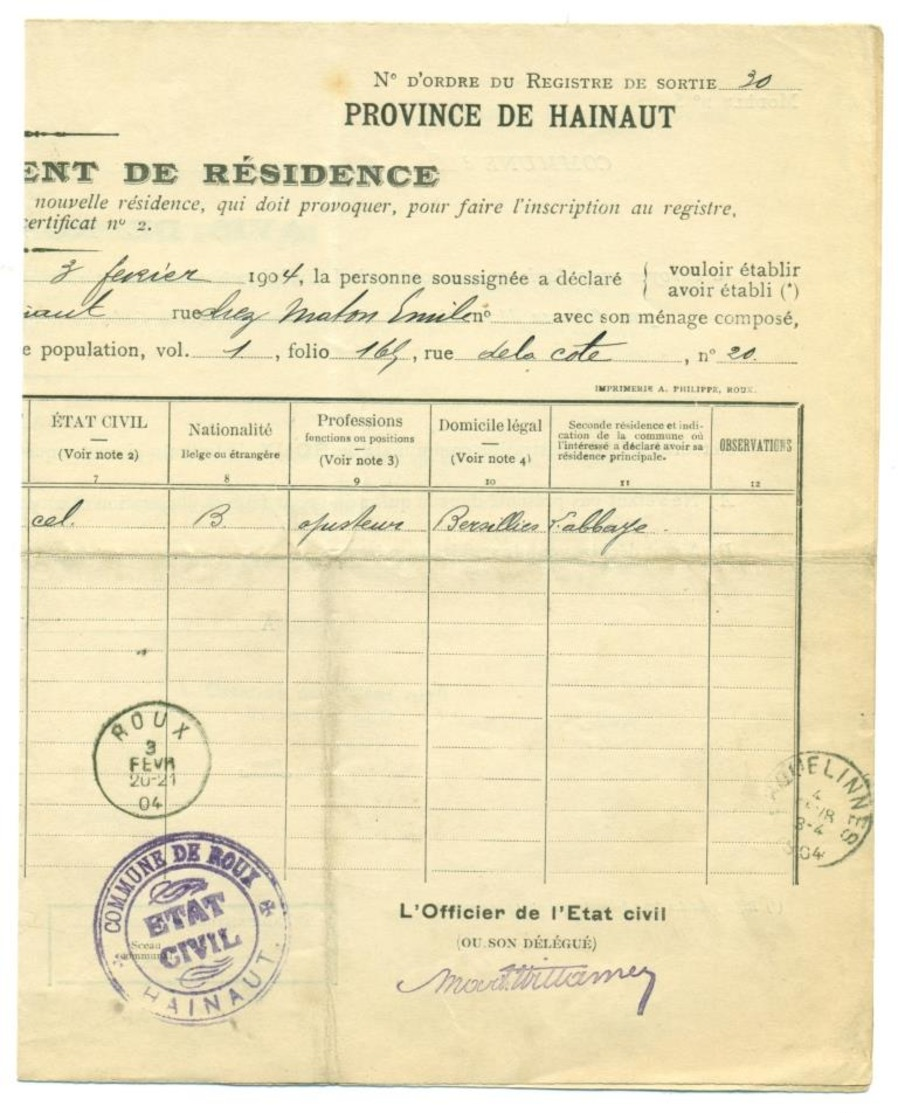 N° D'ORDRE DU REGISTRE DE SORTIE 30
PROVINCE DE HAINAUT
ENT DE RÉSIDENCE
nouvelle résidence, qui doit provoquer, pour faire l'inscription au registre,
certificat n° 2.
3 fevrier 1904, la personne soussignée a déclaré { vouloir établir
avoir établi (*)
rue chez Maton Emile n° avec son ménage composé,
e population, vol. 1, folio 165, rue de la cote, n° 20.
IMPRIMERIE A. PHILIPPE, ROUX.
ÉTAT CIVIL
(Voir note 2)
7
Nationalité
Belge ou étrangére
8
Professions
fonctions ou positions
(Voir note 3)
9
Domicile légal
(Voir note 4)
10
Seconde résidence et indi-
cation de la commune où
l'intéressé a déclaré avoir sa
résidence principale.
11
OBSERVATIONS
12
cel. B. ajusteur Bersillies l'abbaye.
ROUX
3
FEVR
20-21
04
4
8-4
04
COMMUNE DE ROUX
ETAT
CIVIL
HAINAUT
Sceau
communal
L'Officier de l'Etat civil
(OU SON DÉLÉGUÉ)